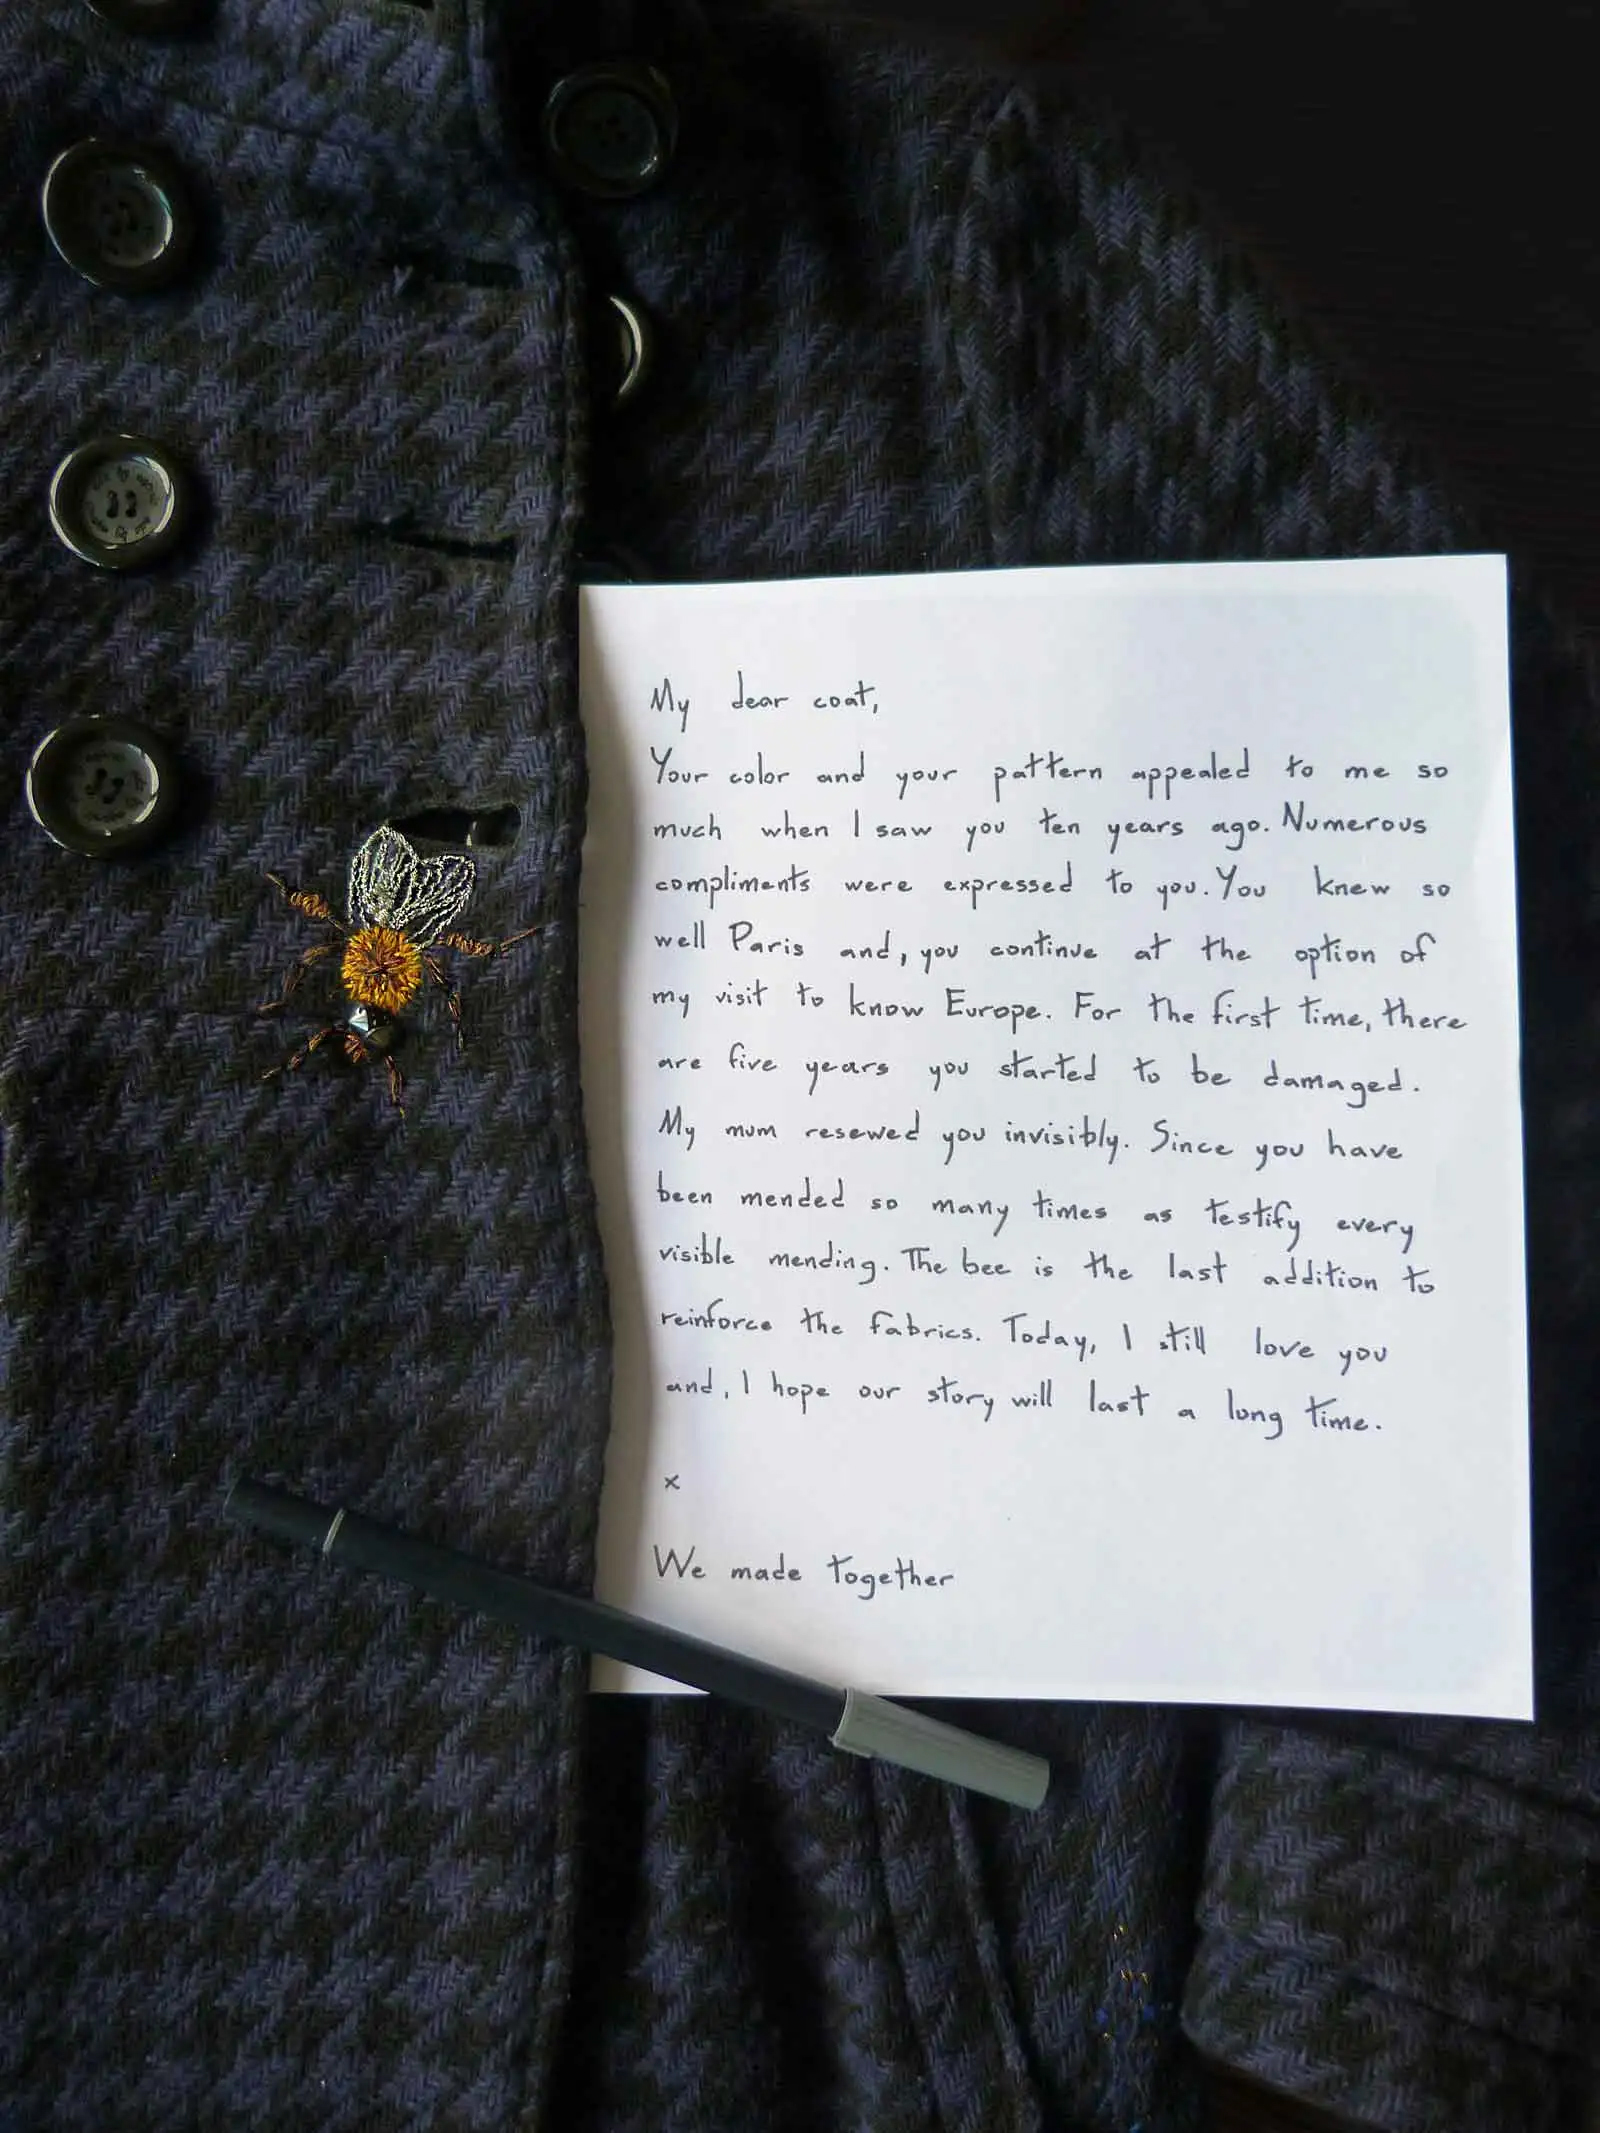 My dear coat,
Your color and your pattern appealed to me so
much when I saw you ten years ago. Numerous
compliments were expressed to you. You knew so
well Paris and, you continue at the option of
my visit to know Europe. For the first time, there
are five years you started to be damaged.
My mum resewed you invisibly. Since you have
been mended so many times as testify every
visible mending. The bee is the last addition to
reinforce the fabrics. Today, I still love you
and, I hope our story will last a long time.
x
We made together